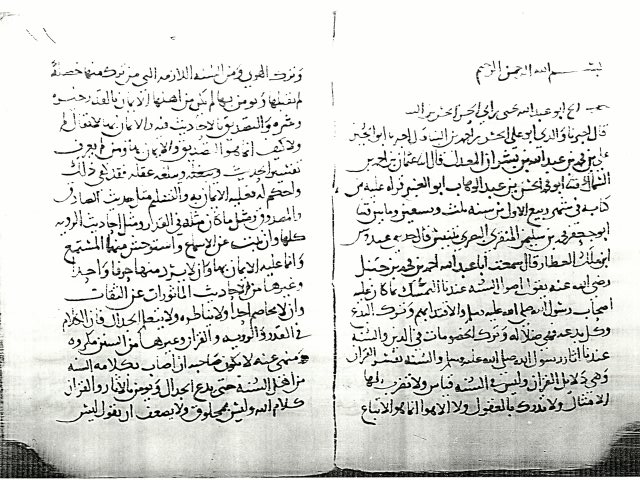 بسم الله الرحمن الرحيم
ابو عبد الله يحيى بن ابي الحسن بن البنا
قال اخبرنا والدي ابو علي الحسن بن احمد بن البنا قال اخبرنا ابو الحسين
علي بن محمد بن عبد الله بن بشران المعدل قال عثمان بن احمد بن
السماك ابو محمد الحسن بن عبد الوهاب ابو العنبر قراءة عليه من
كتابه في شهر ربيع الاول من سنة ثلث وتسعين ومايتين
ابو جعفر محمد بن سليمن المنقري البصري بتنيس قال حدثني عبدوس
ابن ملك العطار قال سمعت ابا عبد الله احمد بن محمد بن حنبل
رضي الله عنه يقول اصول السنة عندنا التمسك بما كان عليه
اصحاب رسول الله صلى الله عليه وسلم والاقتدا بهم وترك البدع
وكل بدعة فهي ضلالة وترك الخصومات في الدين والسنة
عندنا اثار رسول الله صلى الله عليه وسلم والسنة تفسر القران
وهي دلايل القران وليس في السنة قياس ولا تضرب لها
الامثال ولا تدرك بالعقول ولا الاهوا انما هو الاتباع
وترك الهوى ومن السنة اللازمة التي من ترك منها خصلة
لم يقبلها ويومن بها لم يكن من اهلها الايمان بالقدر خيره
وشره والتصديق بالاحاديث فيه والايمان بها لا يقال لم
ولا كيف انما هو التصديق والايمان بها ومن لم يعرف
تفسير الحديث ويبلغه عقله فقد كفي ذلك
واحكم له فعليه الايمان به والتسليم مثل حديث الصادق
والمصدوق ومثل ما كان مثله في القدر ومثل احاديث الروية
كلها وان نبت عن الاسماع واستوحش منها المستمع
وانما عليه الايمان بها وان لا يرد منها حرفا واحدا
وغيرها من الاحاديث الماثورات عن الثقات
وان لا يخاصم احدا ولا يناظره ولا يتعلم الجدال فان الكلام
في القدر والروية والقران وغيرها من السنن مكروه
منهي عنه لا يكون صاحبه ان اصاب بكلامه السنة
من اهل السنة حتى يدع الجدال ويومن بالاثار والقران
كلام الله وليس بمخلوق ولا يضعف ان يقول ليس